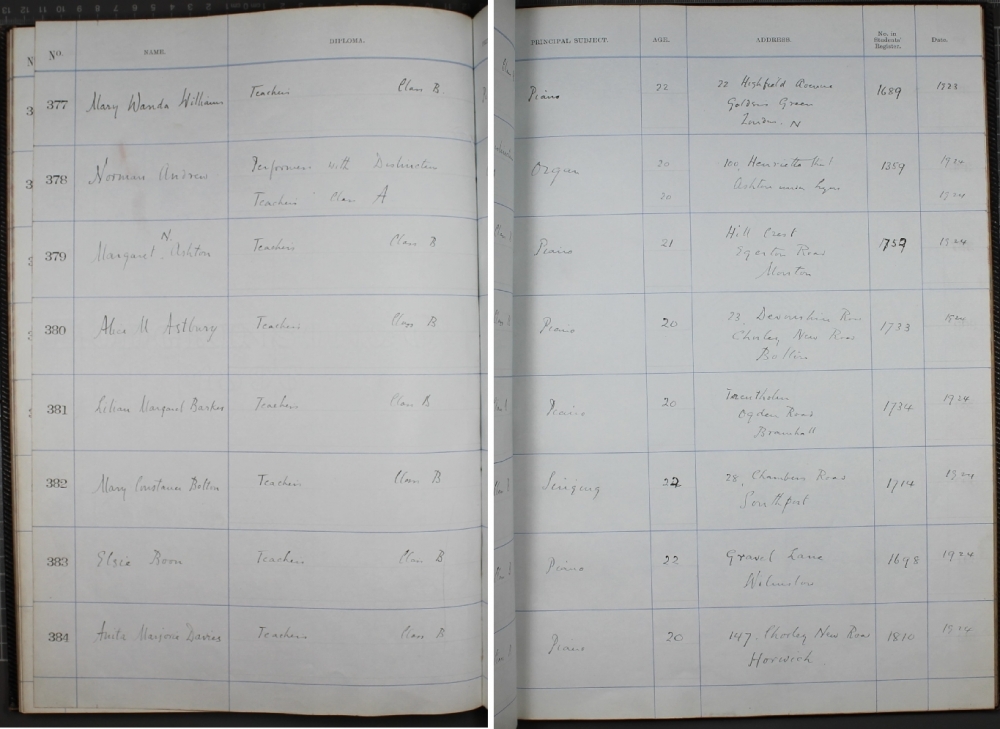 No. NAME. DIPLOMA.
PRINCIPAL SUBJECT. AGE. ADDRESS. No. in Students' Register. Date.
377 Mary Wanda Williams Teachers Class B
Piano 22 22 Highfield Avenue 1689 1923
Golders Green
London. N
378 Norman Andrew Performers with Distinction
Teachers Class A
Organ 20 100, Henrietta Street 1359 1924
20 Ashton under Lyne 1924
379 Margaret N. Ashton Teachers Class B
Piano 21 Hill Crest 1757 1924
Egerton Road
Monton
380 Alice M Astbury Teachers Class B
Piano 20 23, Devonshire 1733 1924
Chorley New Road
Bolton
381 Lilian Margaret Barker Teachers Class B
Piano 20 1734 1924
Ogden Road
Bramhall
382 Mary Constance Bolton Teachers Class B
Singing 22 28, Chambers Road 1714 1924
Southport
383 Elsie Boon Teachers Class B
Piano 22 Gravel Lane 1698 1924
Wilmslow
384 Anita Marjorie Davies Teachers Class B
Piano 20 147, Chorley New Road 1810 1924
Horwich